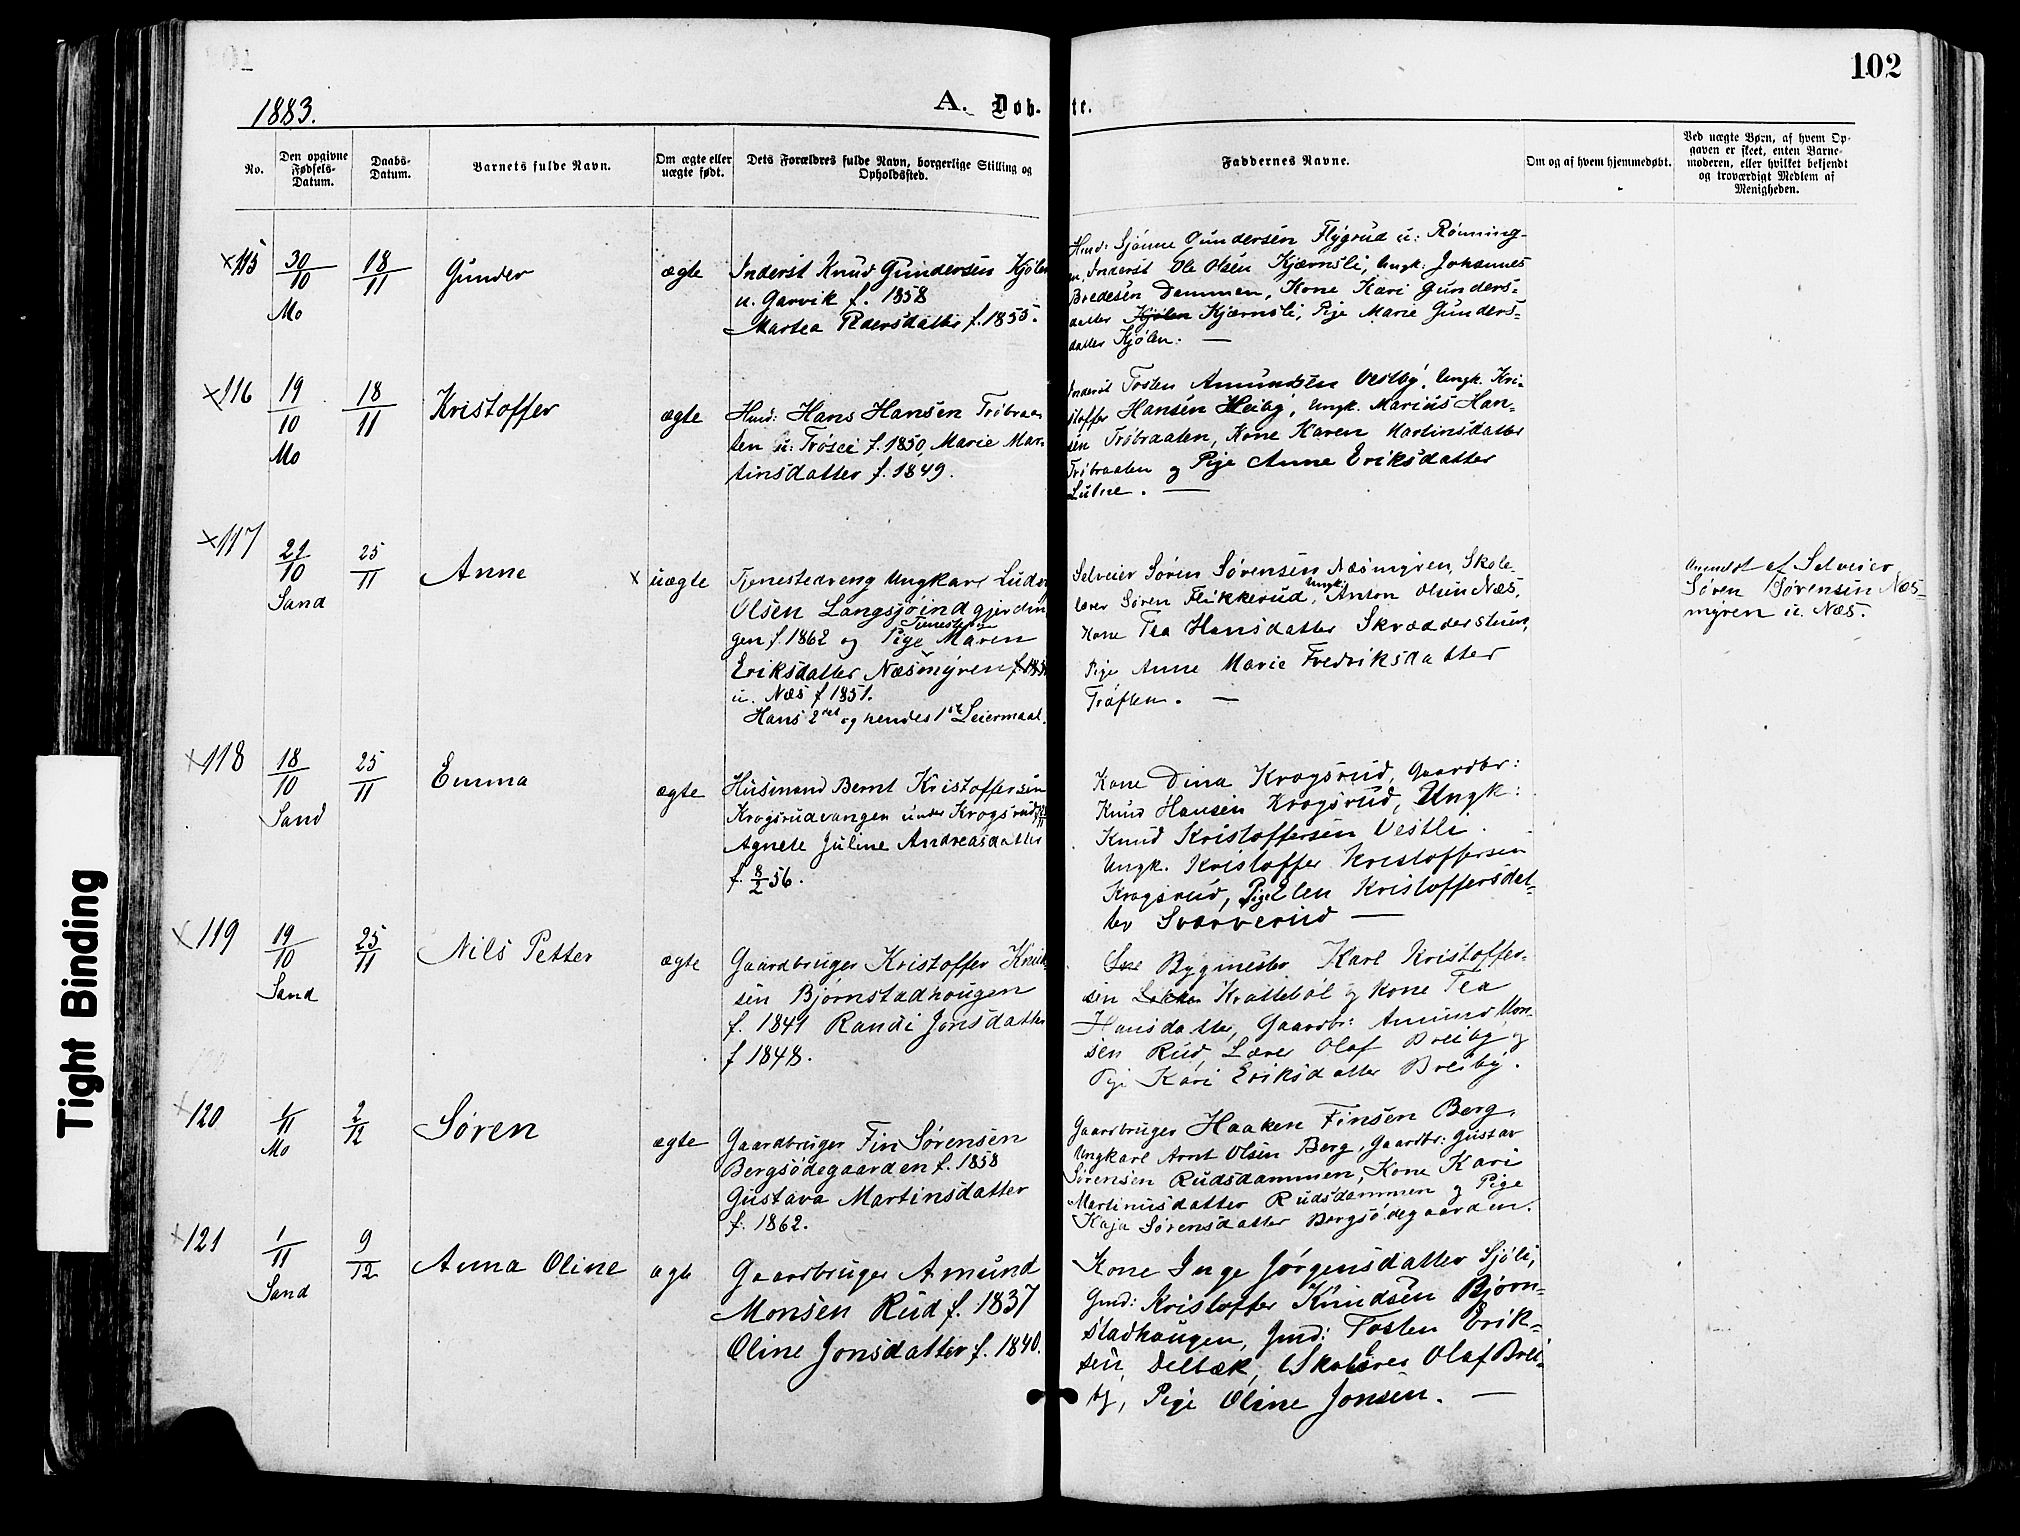 102
1883.
A. Døb-
te.
No.
Den opgivne
Fødsels-
Datum.
Daabs-
Datum.
Barnets fulde Navn.
Om ægte eller
uægte født.
Dets Forældres fulde Navn, borgerlige Stilling og
Opholdssted.
Faddernes Navne.
Om og af hvem hjemmedøbt.
Ved uægte Børn, af hvem Op-
gaven er skeet, enten Barne-
moderen, eller hvilket bekjendt
og troværdigt Medlem af
Menigheden.
×115
30/10
Mo
18/11
Gunder
ægte
Inderst Knud Gundersen Kjølen
u. Garvik f. 1858
Martea Pedersdatter f. 1855.
Husd: Gundersen Flygrud u: Rønning-
en, Inderst Ole Olsen Kjærnsli, Ungk: Johannes
Bredesen Dammen, Kone Kari Gunders-
datter Kjølen Kjærnsli, Pige Marie Gunders-
datter Kjølen. —
×116
19/10
Mo
18/11
Kristoffer
ægte
Husd: Hans Hansen Trøbraa-
ten u: Trøsei f. 1850, Marie Mar-
tinsdatter f. 1849.
Inderst Tosten Amundsen Vestby, Ungk. Kri-
stoffer Hansen Heiby, Ungk. Marius Han-
sen Trøbraaten, Kone Karen Martinsdatter
Trøbraaten og Pige Anne Eriksdatter
—
×117
21/10
Sand
25/11
Anne
× uægte
Tjenestedreng Ungkar
Olsen Langsjøindgjerdin
gen f. 1862 og Tjeneste Pige Maren
Eriksdatter Næsmyren
u. Næs f 1851.
Hans 2det og hendes 1ste Leiermaal.
Selveier Søren Sørensen Næsmyren, Skole-
lærer Søren Flikkerud, Ungk. Anton Olsen Næs,
Kone Tea Hansdatter Skrædderstuen,
Pige Anne Marie Fredriksdatter
Trøften. —
Anmeldt af Selveier
Søren Sørensen Næs-
myren u. Næs.
×118
18/10
Sand
25/11
Emma
ægte
Husmand Bernt Kristoffersen
Krogsrudvangen under Krogsrud
Agnete Juline Andreasdatter
f. 8/2 56.
Kone Dina Krogsrud, Gaardbr:
Knud Hansen Krogsrud, Ungk:
Knud Kristoffersen Vestli.
Ungk. Kristoffer Kristoffersen
Krogsrud, Pige Elen Kristoffersdat-
ter Sværverud —
×119
19/10
Sand
25/11
Nils Petter
ægte
Gaardbruger Kristoffer Knud-
sen Bjørnstadhaugen
f. 1841 Randi Jonsdatter
f 1848.
Bygmester Karl Kristoffer-
sen Løkken Krattebøl og Kone Tea
Hansdatter, Gaardbr: Amund Mon-
sen Rud, Lærer Olaf Breiby og
Pige Kari Eriksdatter Breiby.
×120
1/11
Mo
2/12
Søren
ægte
Gaardbruger Fin Sørensen
Bergsødegaarden f. 1858
Gustava Martinsdatter
f. 1862.
Gaardbruger Haaken Finsen Berg,
Ungkarl Arnt Olsen Berg, Gaardbr: Gustav
Sørensen Rudsdammen, Kone Kari
Martinusdatter Rudsdammen og Pige
Kaja Sørensdatter Bergsødegaarden.
×121
1/11
Sand
9/12
Anna Oline
ægte
Gaardbruger Amund
Monsen Rud f. 1837
Oline Jonsdatter f. 1840.
Kone Inge Jørgensdatter Sjøli,
Gmd: Kristoffer Knudsen Bjørn-
stadhaugen, Gmd: Tosten Erik-
sen Delbæk, Skolelærer Olaf Brei-
by, Pige Oline Jonsen. —
Tight Binding